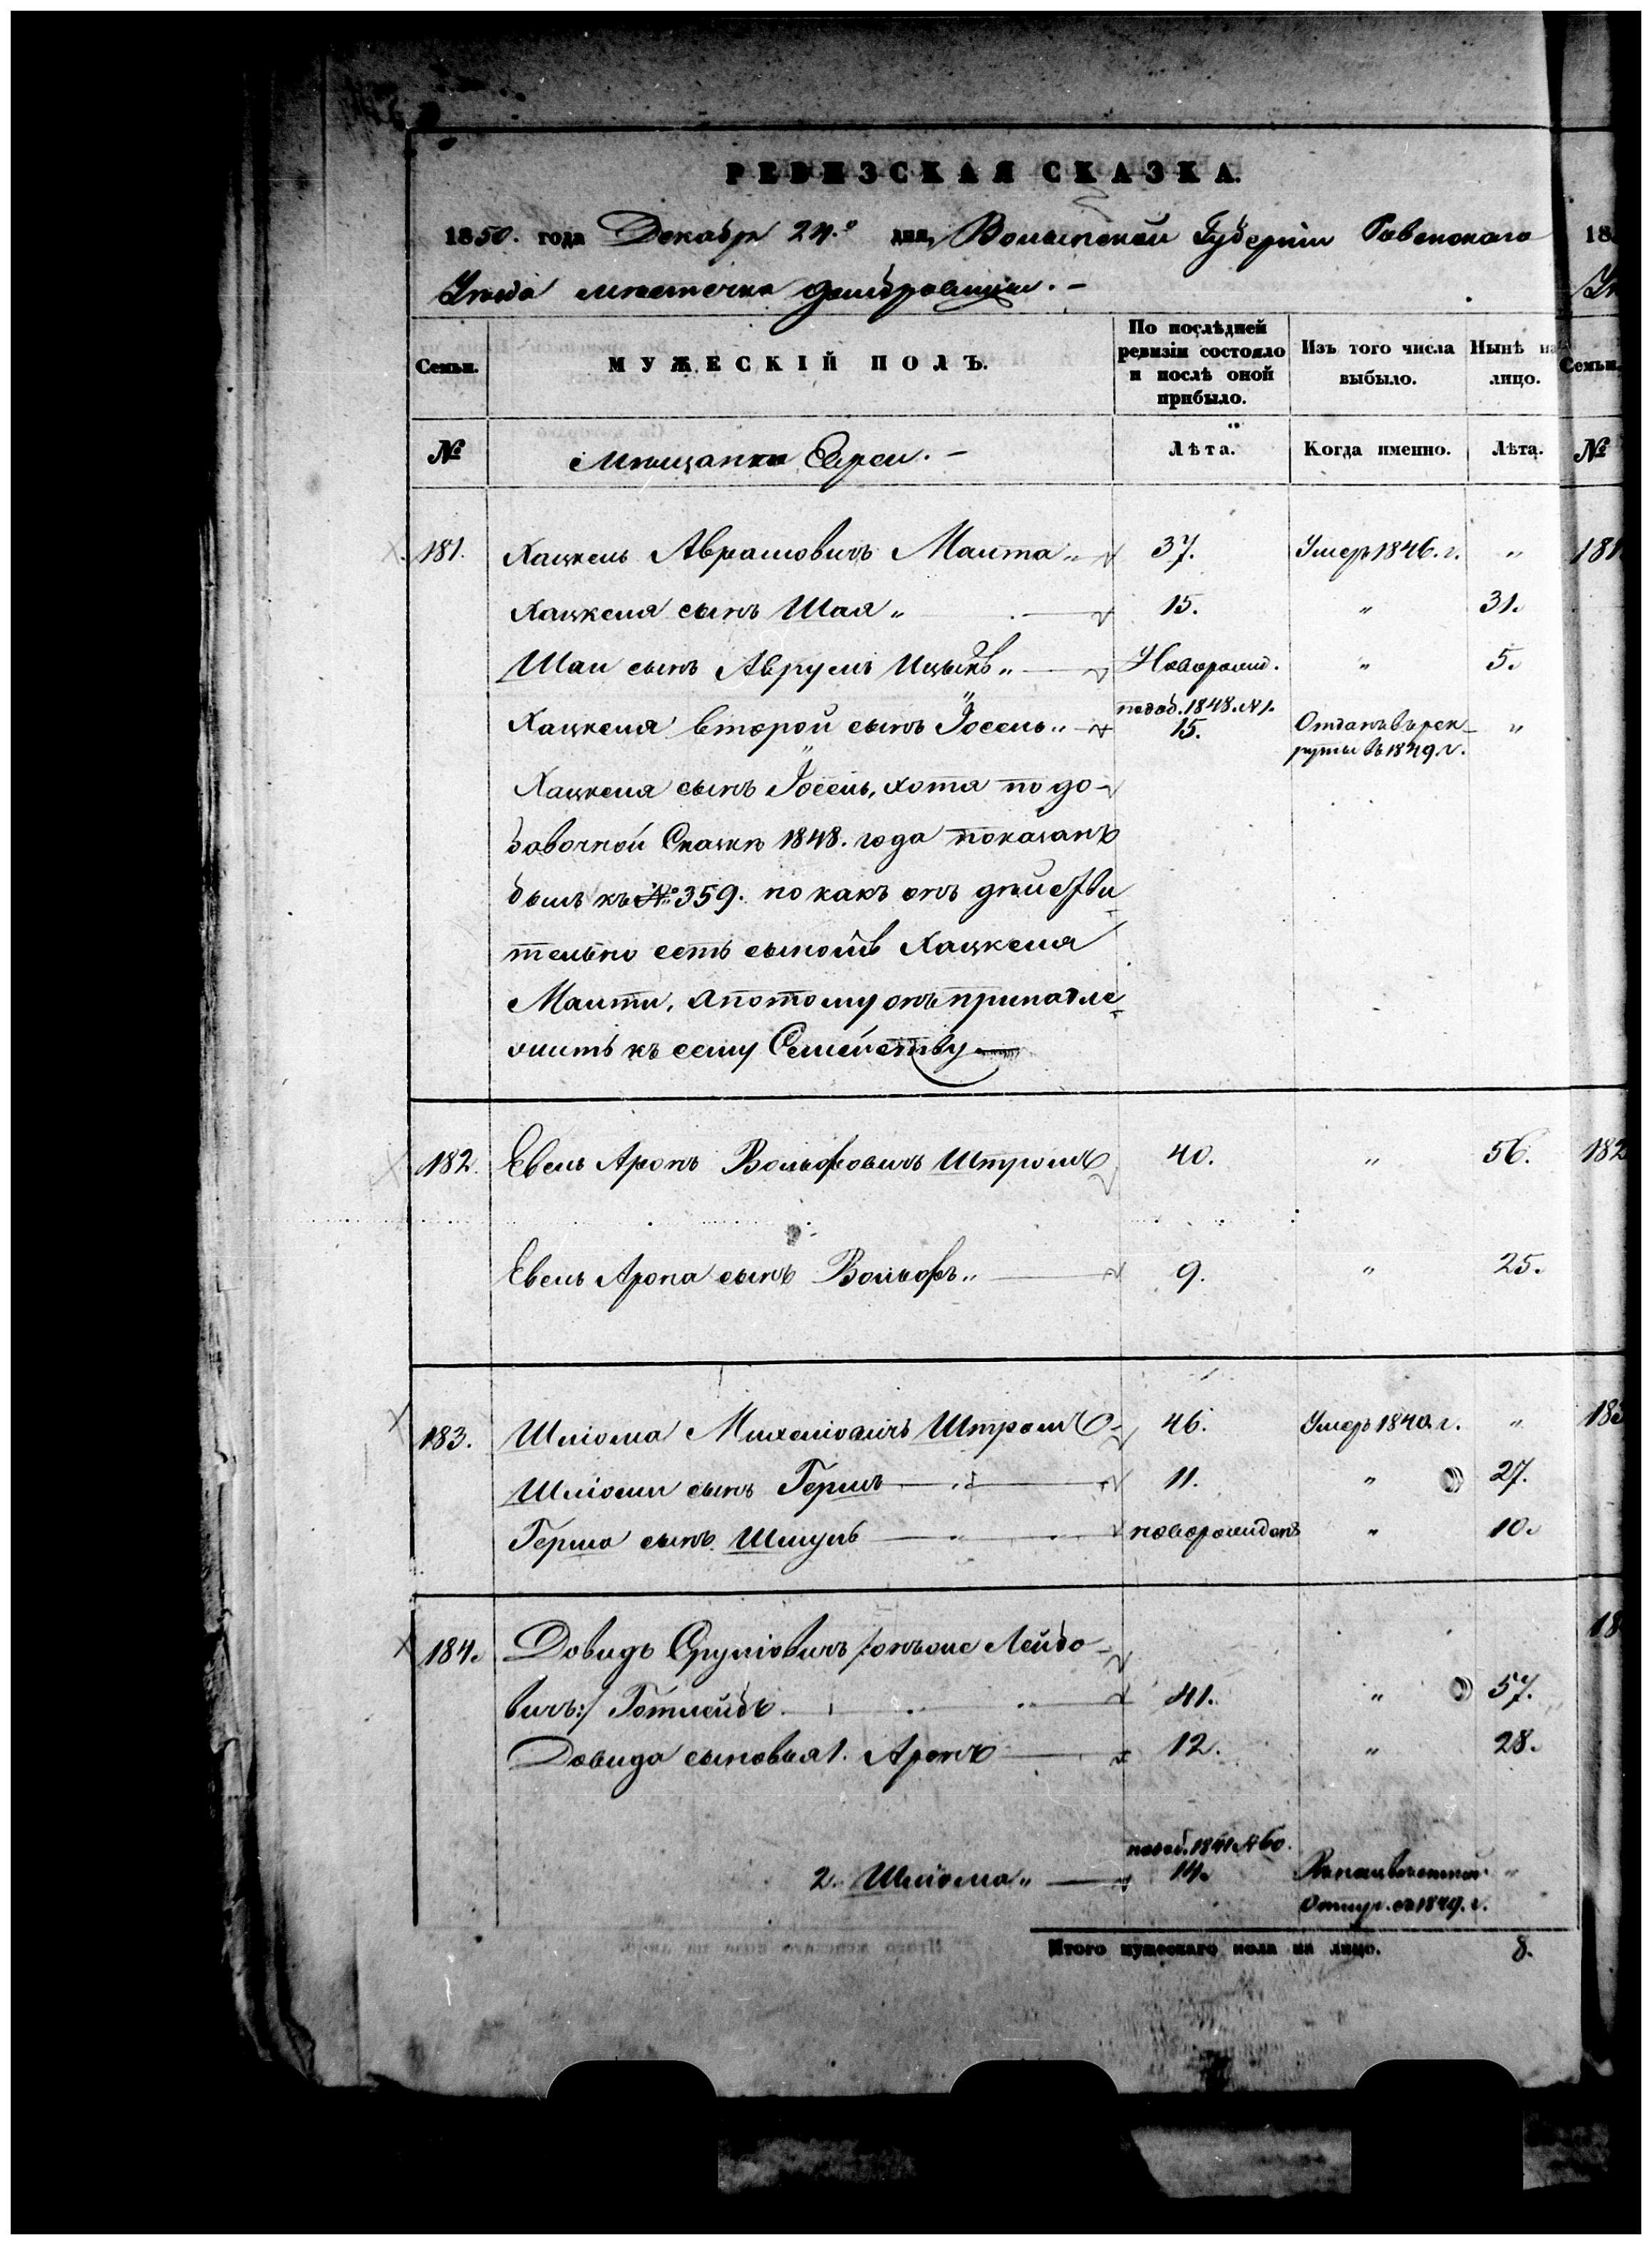 РЕВИЗСКАЯ СКАЗКА.
1850. года Декабря 24.го дня, Волынской Губерніи Ровенскаго
Уѣзда мѣстечка Домбровицы. –
Семьи. МУЖЕСКІЙ ПОЛЪ. По послѣдней ревизіи состояло и послѣ оной прибыло. Изъ того числа выбыло. Нынѣ на лицо. Семьи.
№ Мѣщанъ Евреи. – Лѣта. Когда именно. Лѣта. №
181. Хацкель Аврамовичъ Маита „ 37. Умеръ 1846. г. „ 181
Хацкеля сынъ Шая „ 15. „ 31.
Шаи сынъ Аврумъ Ицыкъ „ Новорожд. „ 5.
Хацкеля второй сынъ Іосель „ подоб. 1848. №1. 15. Отданъ въ рек-
руты въ 1849. г. „
Хацкеля сынъ Іосель, хотя по до-
бавочной Сказкѣ 1848. года показанъ
былъ къ № 359. но какъ онъ дѣйстви-
тельно есть сыномъ Хацкеля
Маити, а потому онъ принадле-
житъ къ сему Семейству
182. Евель Аронъ Вольфовичъ Штромъ 40. „ 56. 182
Евель Арона сынъ Вольфъ „ 9. „ 25.
183. Шліома Михеліовичъ Штромъ 46. Умеръ 1840. г. „ 183
Шліомы сынъ Гершъ 11. „ 27.
Герша сынъ Шмуль новорожденъ „ 10.
184. Довидъ Сруліовичъ /: онъ же Лейбо- 18
вичъ :/ Готлейбъ 41. „ 57.
Довида сыновья 1. Аронъ 12. „ 28.
2. Шліома „ подоб. 1841 №60. 14. „
1849. г.
Итого мужескаго пола на лицо. 8.